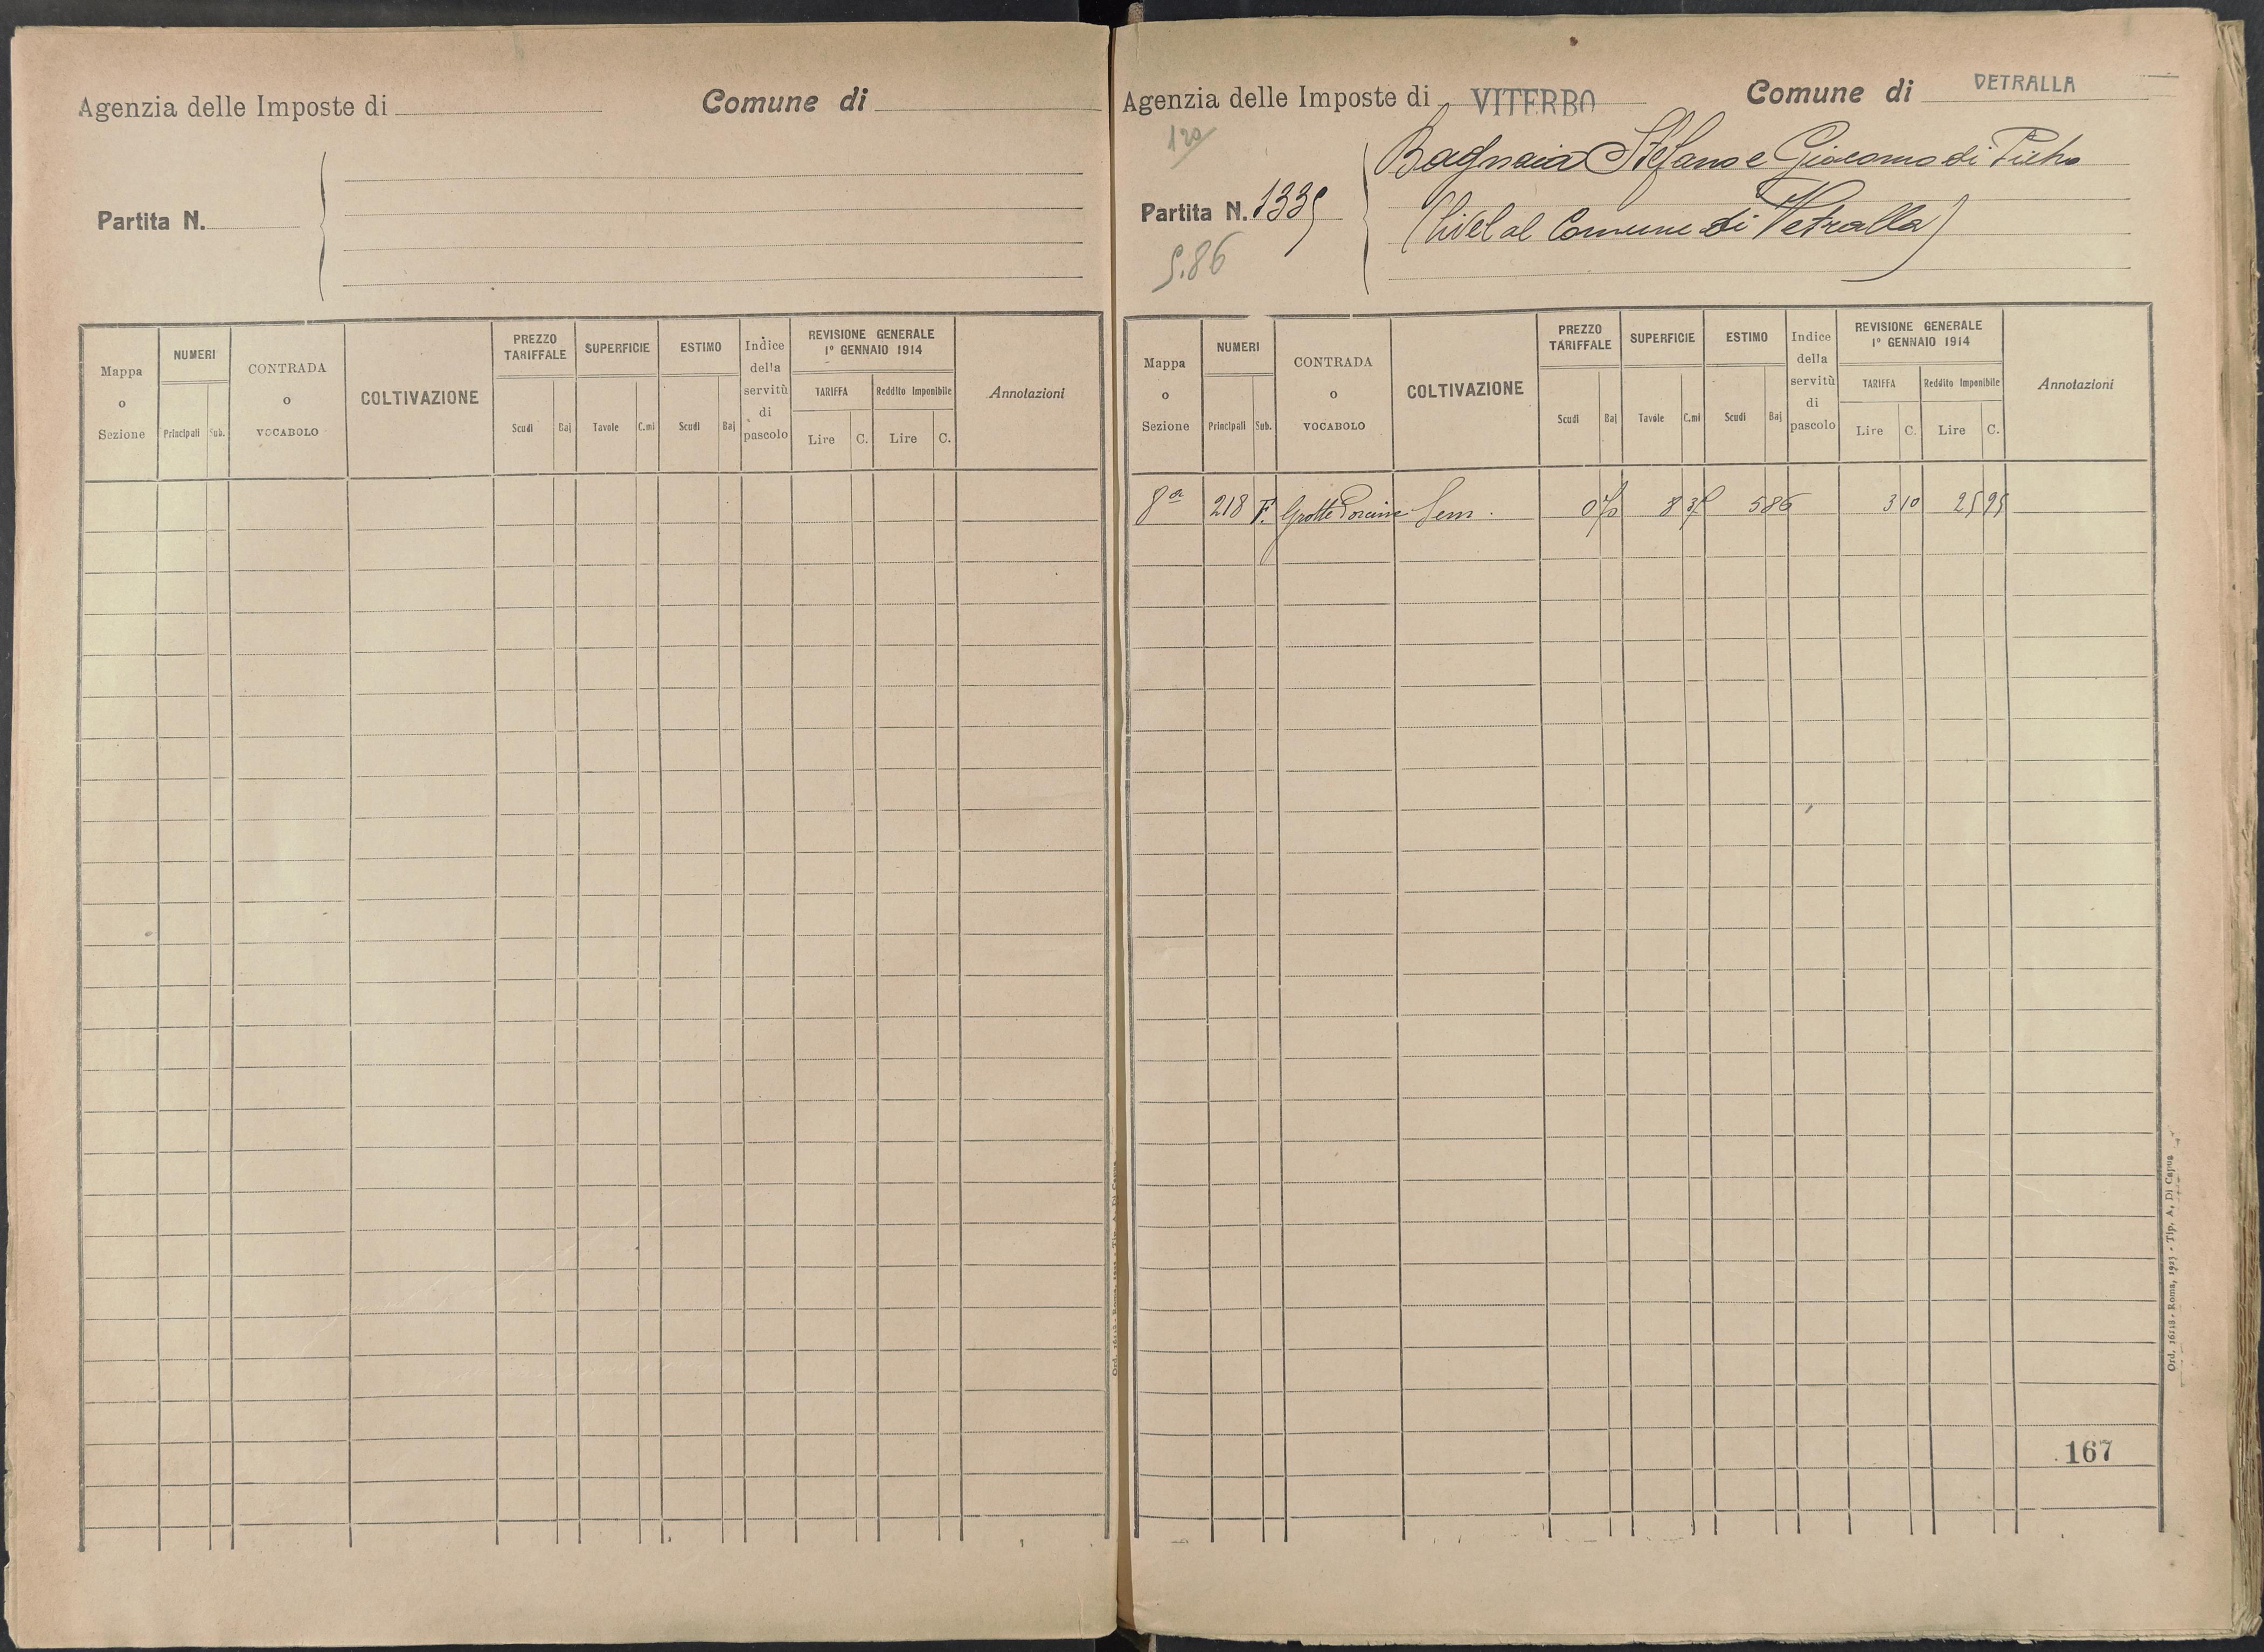 Agenzia delle Imposte di
Comune di
Partita N.
Mappa o Sezione
NUMERI
Principali Sub.
CONTRADA o VOCABOLO
COLTIVAZIONE
PREZZO TARIFFALE
Scudi Baj
SUPERFICIE
Tavole C.mi
ESTIMO
Scudi Baj
Indice della servitù di pascolo
REVISIONE GENERALE
1° GENNAIO 1914
TARIFFA Reddito Imponibile
Lire C. Lire C.
Annotazioni
Ord. 16118 - Roma, 1923 - Tip. A. Di Capua
Agenzia delle Imposte di VITERBO
Comune di VETRALLA
120
Partita N. 1335
5.86
Bagnaia Stefano e Giacomo di Pietro
(livel al Comune di Vetralla)
Mappa o Sezione
NUMERI
Principali Sub.
CONTRADA o VOCABOLO
COLTIVAZIONE
PREZZO TARIFFALE
Scudi Baj
SUPERFICIE
Tavole C.mi
ESTIMO
Scudi Baj
Indice della servitù di pascolo
REVISIONE GENERALE
1° GENNAIO 1914
TARIFFA Reddito Imponibile
Lire C. Lire C.
Annotazioni
8a 218 F. Grotte Porcine Sem. 8 37 5 86 3 10 25 95
167
Ord. 16118 - Roma, 1923 - Tip. A. Di Capua